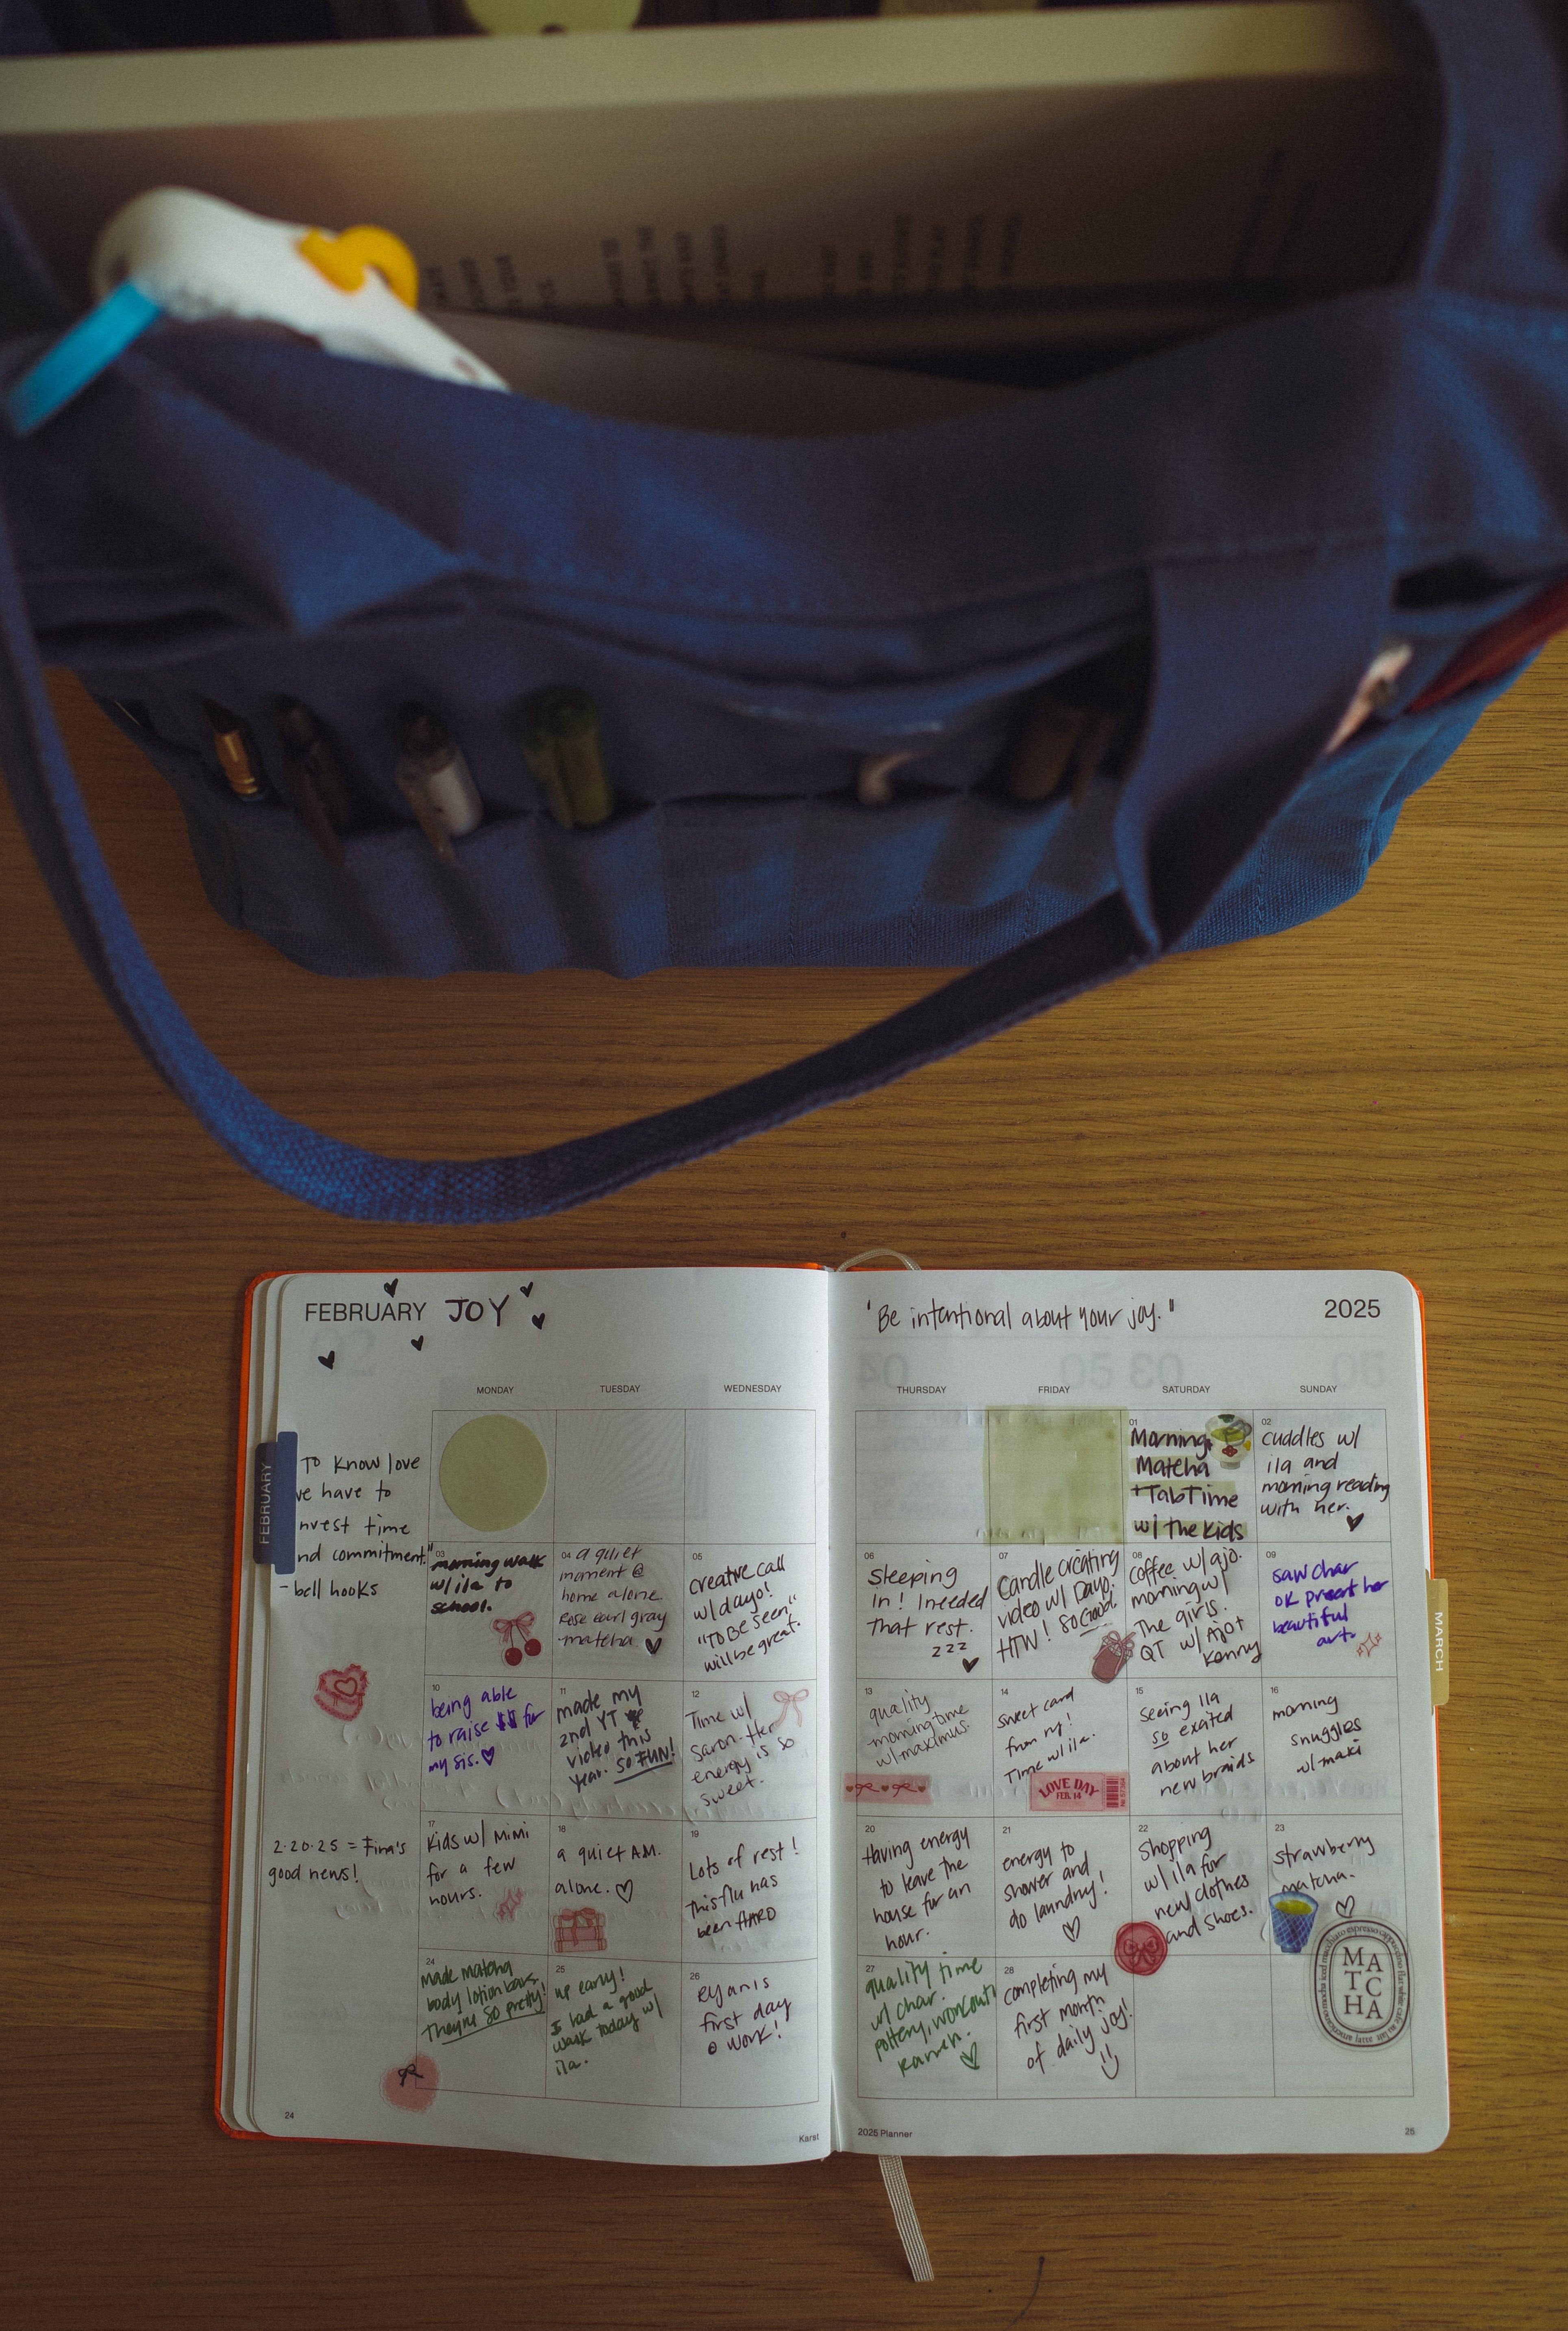 FEBRUARY JOY
"Be intentional about your joy."
2025
MONDAY
TUESDAY
WEDNESDAY
THURSDAY
FRIDAY
SATURDAY
SUNDAY
FEBRUARY
MARCH
To know love
we have to
invest time
and commitment."
- bell hooks
01
Morning
Matcha
+TabTime
w/ the kids
02
cuddles w/
ila and
morning reading
with her.
03
morning walk
w/ ila to
school.
04
a quiet
moment @
home alone.
Rose earl gray
matcha.
05
creative call
w/ dayo!
"TO BE SEEN"
will be great.
06
Sleeping
in! I needed
that rest.
zzz
07
Candle creating
video w/ Dayo.
HTW! SO Good!
08
coffee w/ ajo.
morning w/
The girls.
QT w/ AJOT
Kenny
09
saw char
her
beautiful
art.
10
being able
to raise $$ for
my sis.
11
made my
2nd YT
video this
year. SO FUN!
12
Time w/
Saron. Her
energy is so
sweet.
13
quality
morning time
w/ maximus.
14
sweet card
from ry!
Time w/ ila.
LOVE DAY
FEB. 14
15
seeing Ila
so exated
about her
new braids
16
morning
snuggles
w/ maki
2·20·25 = Fina's
good news!
17
Kids w/ MiMi
for a few
hours.
18
a quiet A.M.
alone.
19
Lots of rest!
This flu has
been HARD
20
Having energy
to leave the
house for an
hour.
21
energy to
shower and
do laundry!
22
Shopping
w/ ila for
new clothes
and shoes.
23
strawberry
matcha.
MA
TC
HA
24
made matcha
body lotion bars.
They're SO pretty!
25
up early!
I had a good
walk today w/
ila.
26
Ryan's
first day
@ work!
27
quality time
w/ char.
pottery, workout,
ramen.
28
completing my
first month
of daily joy!
24
Karst
2025 Planner
25